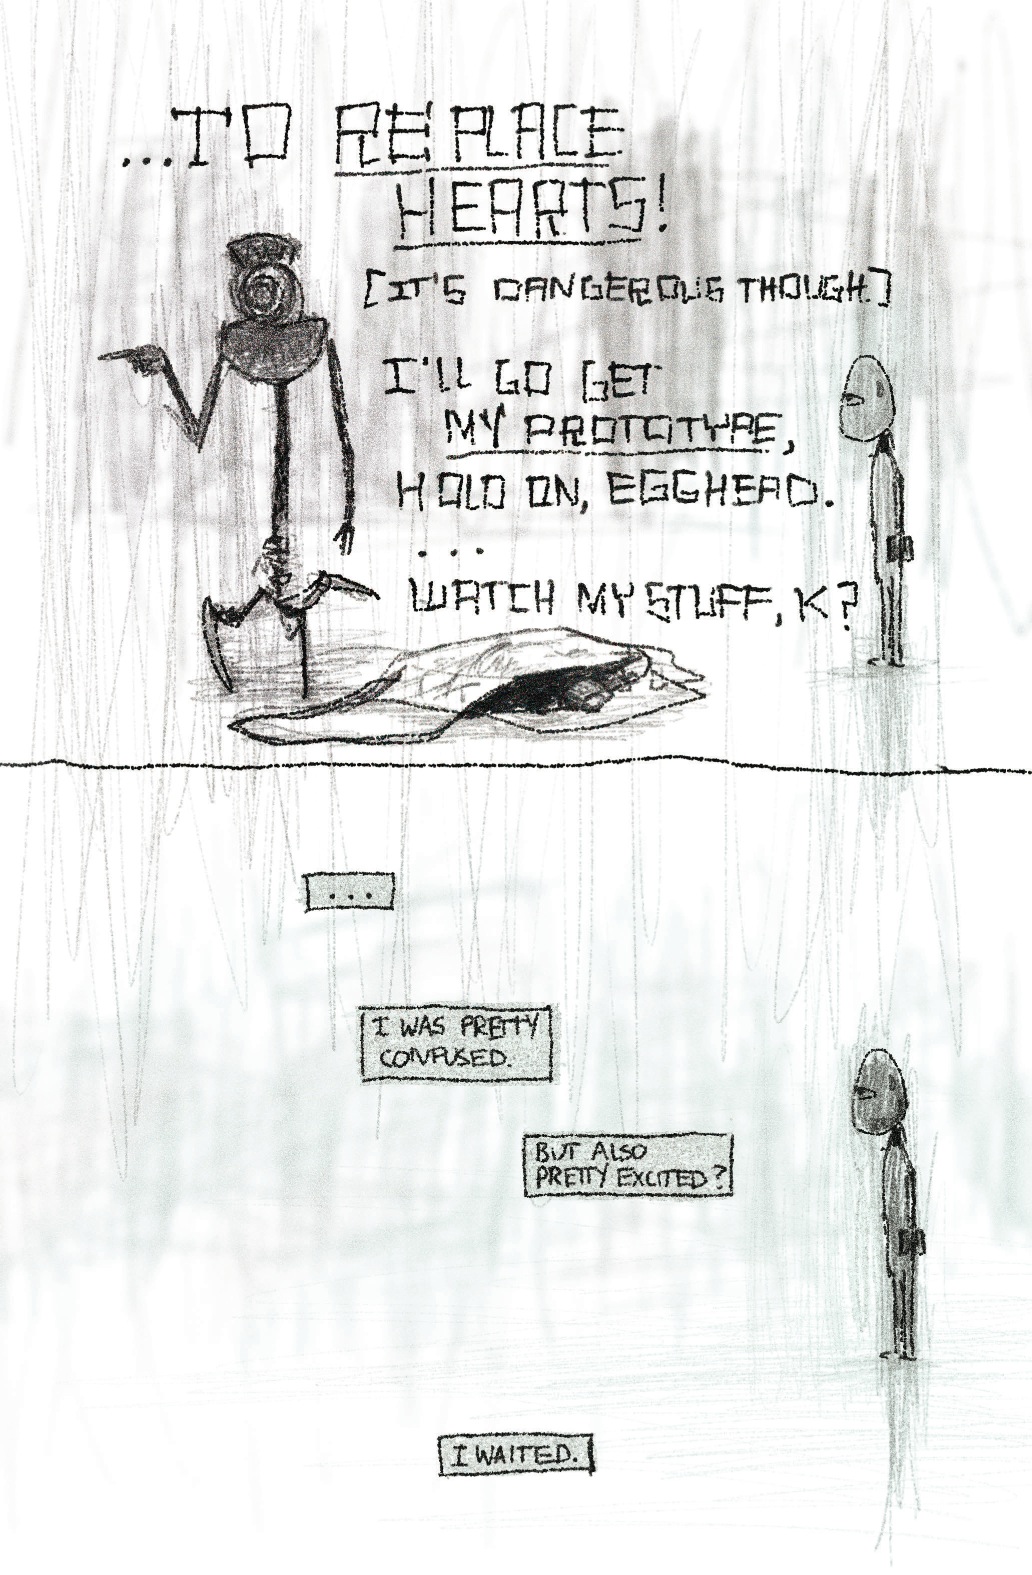 ...TO REPLACE
HEARTS!
[IT'S DANGEROUS THOUGH.]
I'LL GO GET
MY PROTOTYPE,
HOLD ON, EGGHEAD.
...
WATCH MY STUFF, K?
...
I WAS PRETTY
CONFUSED.
BUT ALSO
PRETTY EXCITED?
I WAITED.